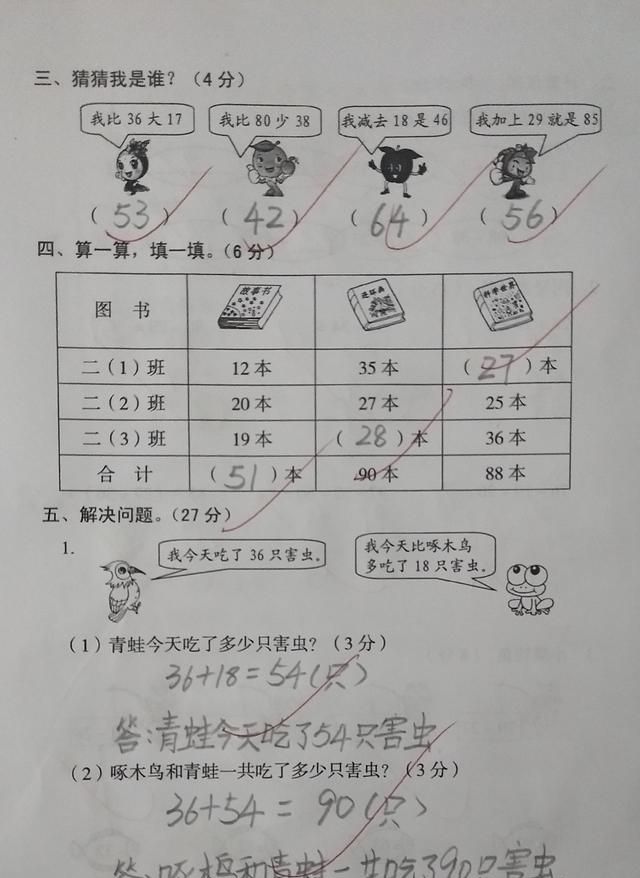 三、猜猜我是谁？（4 分）
我比 36 大 17
我比 80 少 38
我减去 18 是 46
我加上 29 就是 85
（ 53 ） （ 42 ） （ 64 ） （ 56 ）
四、算一算，填一填。（6 分）
图 书 故事书 科学世界
二（1）班 12 本 35 本 （ 27 ）本
二（2）班 20 本 27 本 25 本
二（3）班 19 本 （ 28 ）本 36 本
合 计 （ 51 ）本 90 本 88 本
五、解决问题。（27 分）
1.
我今天吃了 36 只害虫。
我今天比啄木鸟
多吃了 18 只害虫。
（1）青蛙今天吃了多少只害虫？（3 分）
36+18=54(只)
答:青蛙今天吃了54只害虫
（2）啄木鸟和青蛙一共吃了多少只害虫？（3 分）
36+54=90(只)
答:啄木鸟和青蛙一共吃了90只害虫